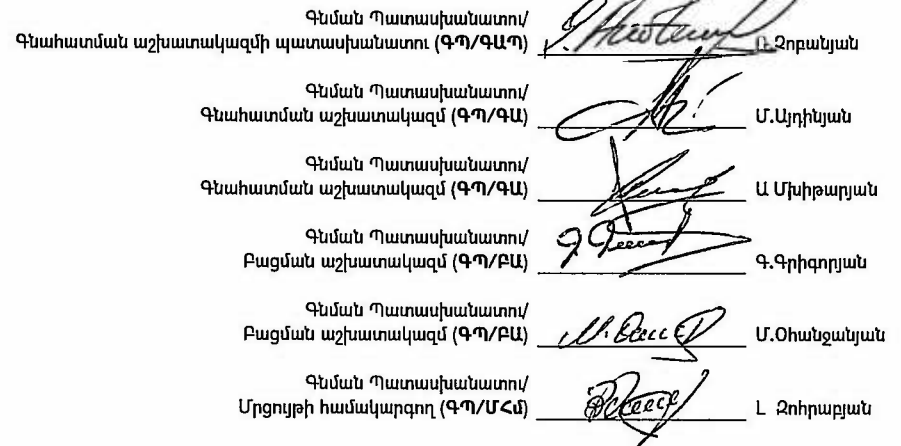 Գնման Պատասխանատու/
Գնահատման աշխատակազմի պատասխանատու (ԳՊ/ԳԱՊ) Չոբանյան
Գնման Պատասխանատու/
Գնահատման աշխատակազմ (ԳՊ/ԳԱ) Մ.Այդինյան
Գնման Պատասխանատու/
Գնահատման աշխատակազմ (ԳՊ/ԳԱ) Ա Մխիթարյան
Գնման Պատասխանատու/
Բացման աշխատակազմ (ԳՊ/ԲԱ) Գ.Գրիգորյան
Գնման Պատասխանատու/
Բացման աշխատակազմ (ԳՊ/ԲԱ) Մ.Օհանջանյան
Գնման Պատասխանատու/
Մրցույթի համակարգող (ԳՊ/ՄՀմ) Լ Զոհրաբյան